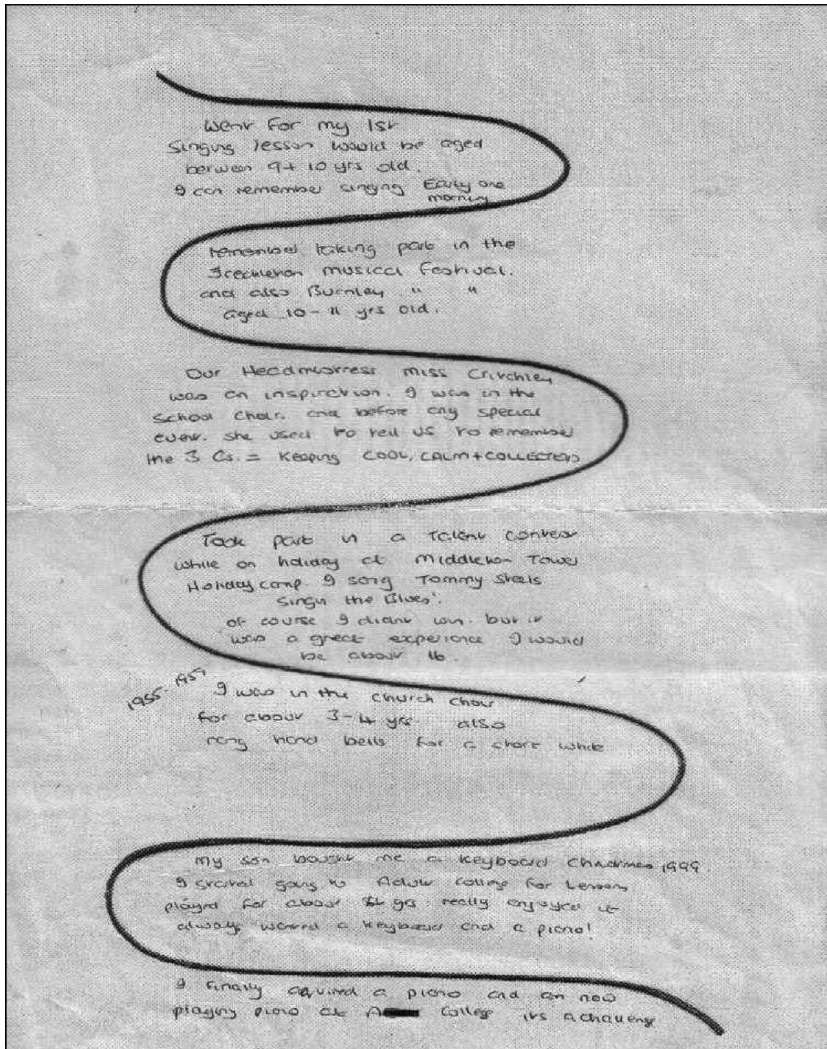 Went for my 1st
Singing lesson would be aged
between 9+10 yrs old.
I can remember singing Early one
morning
remember taking part in the
Freckleton musical Festival.
and also Burnley " "
aged 10-11 yrs old.
Our Headmistress miss Critchley
was an inspiration. I was in the
School choir. and before any special
event. she used to tell us to remember
the 3 Cs. = Keeping COOL, CALM + COLLECTED
Took part in a Talent contest
while on holiday at Middleton Tower
Holiday camp. I sang Tommy Steels
Singin the Blues'.
of course I didnt win. but it
was a great experience I would
be about 16.
1955-1959
I was in the church choir
for about 3-4 yrs. also
rang hand bells for a short while
My son bought me a keyboard 1999.
I started going to Adult College for Lessons
played for about yrs. really enjoyed it
always wanted a keyboard and a piano!
I finally aquired a piano and am now
playing piano at A College its a challenge